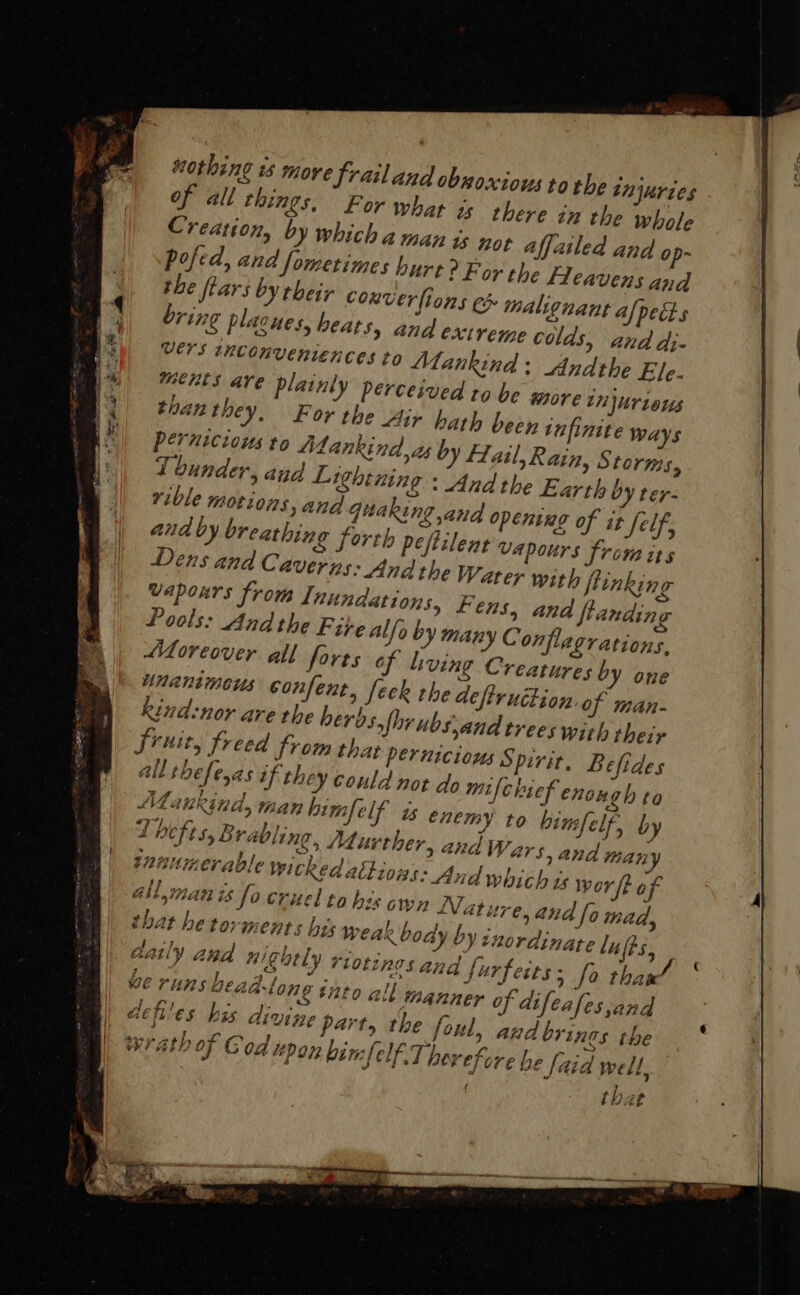 nothing is more frail and obnoxious to the injuries
of all things. For what is there in the whole
Creation, by which a man is not aſſailed and op-
poſed, and ſometimes hurt? For the Heavens and
the ſtars by their converſions & malignant aſpects
bring plagues, heats, and extreme colds, and di-
vers inconveniences to Mankind: And the Ele-
ments are plainly perceived to be more injurious
than they. For the Air hath been infinite ways
pernicious to Mankind, as by Hail, Rain, Storms,
Thunder, and Lightning: And the Earth by ter-
rible motions, and quaking, and opening of it ſelf,
and by breathing forth peſtilent vapours from its
Dens and Caverns: And the Water with ſtinking
vapours from Inundations, Fens, and ſtanding
Pools: And the Fire alſo by many Conflagrations.
Moreover all ſorts of living Creatures by one
unanimous conſent, ſeek the deſtruction of man-
kind: nor are the herbs, ſhrubs, and trees with their
fruit, freed from that pernicious Spirit. Beſides
all theſe, as if they could not do miſchief enough to
Mankind, man himſelf is enemy to himſelf, by
Thefts, Brabling, Murther, and Wars, and many
innumerable wicked actions: And which is worſt of
all, man is ſo cruel to his own Nature, and ſo mad,
that he torments his weak body by inordinate luſts,
daily and nightly riotings and ſurfeits; ſo that
he runs head-long into all manner of diſeaſes, and
defiles his divine part, the ſoul, and brings the
wrath of God upon himſelf. Therefore he ſaid well,
that